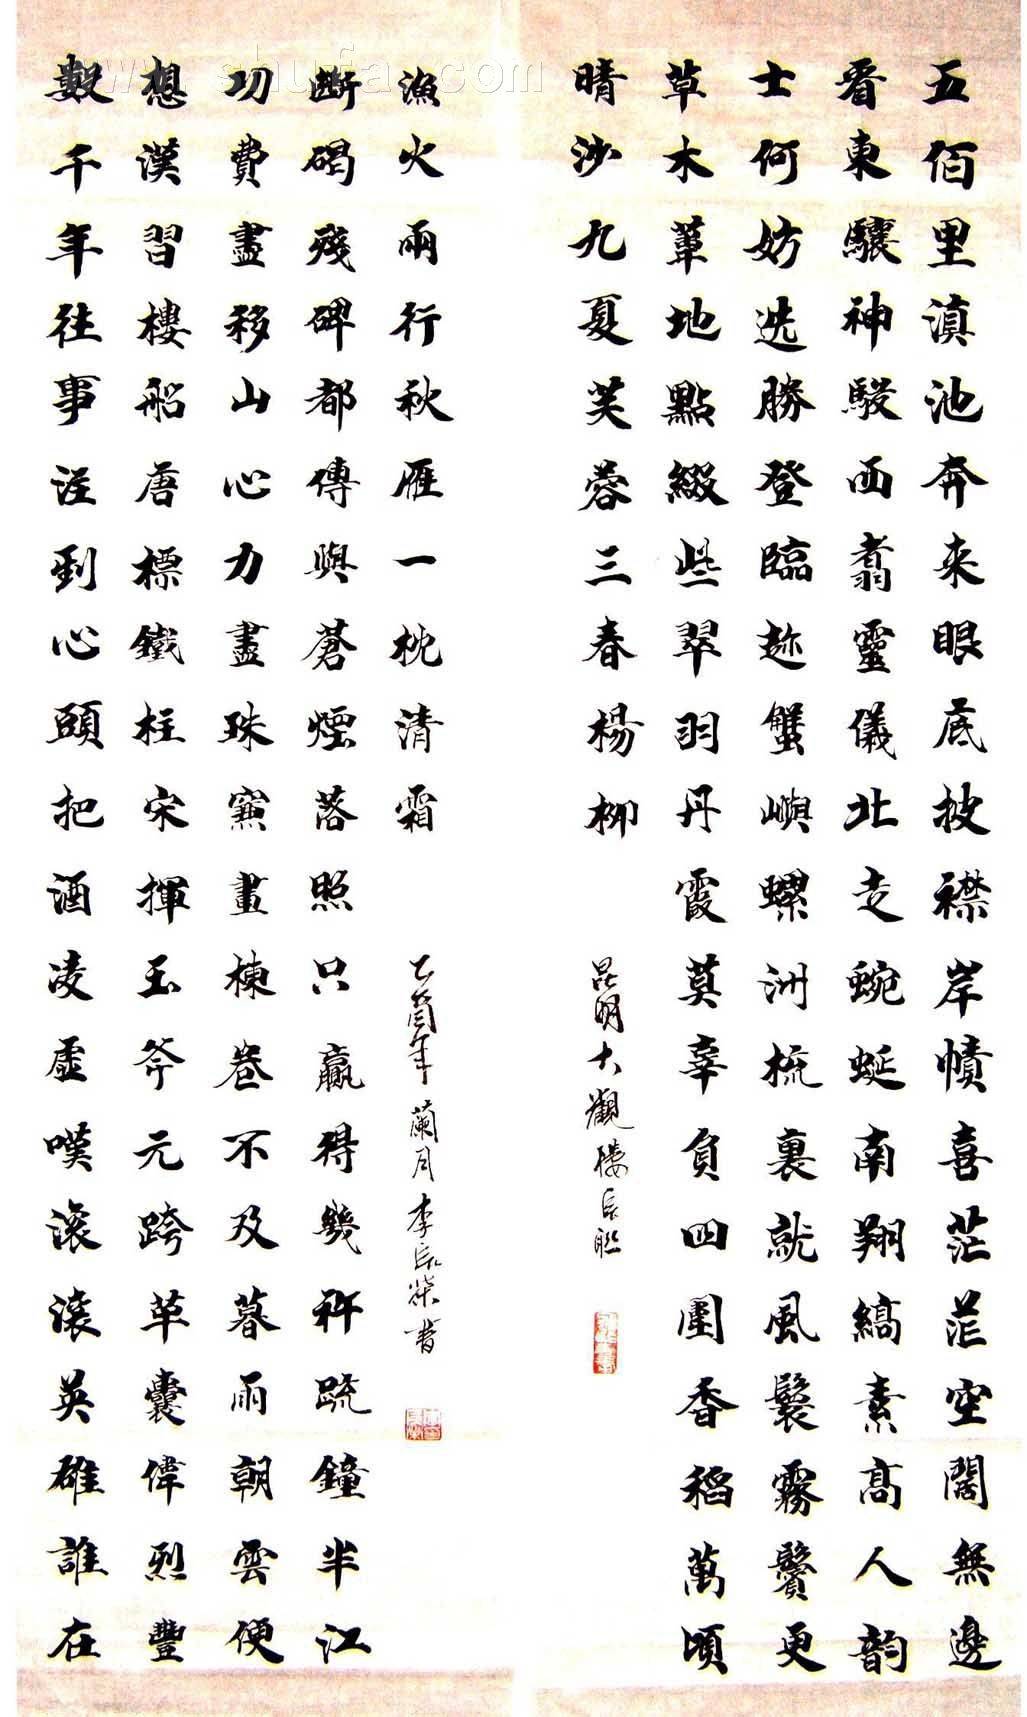 五佰里滇池奔来眼底披襟岸幘喜茫茫空闊無邊
看東驤神駿西翥靈儀北走蜿蜒南翔縞素高人韵
士何妨选勝登臨趂蟹嶼螺洲梳裏就風鬟霧鬢更
草木葦地點綴些翠羽丹霞莫辜負四圍香稻萬頃
晴沙九夏芙蓉三春楊柳
昆明大觀楼長联
数千年往事注到心頭把酒凌虛嘆滚滚英雄誰在
想漢習樓船唐標鐵柱宋揮玉斧元跨革囊偉烈豐
功費盡移山心力盡珠簾畫棟卷不及暮雨朝雲便
断碣殘碑都傳與蒼煙落照只贏得幾杵疏鐘半江
漁火兩行秋雁一枕清霜
乙酉年蘭月李長榮書
www.shufa.com